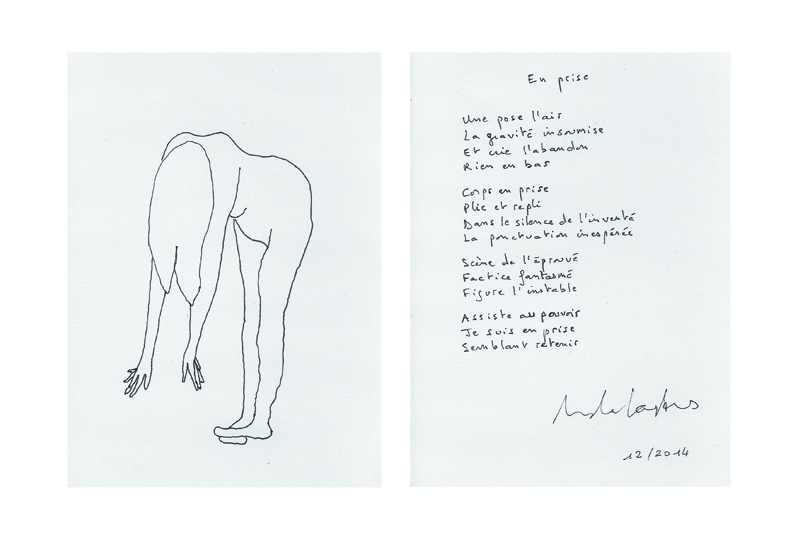 En prise
Une pose l'air
La gravité insoumise
Et crie l'abandon
Rien en bas
Corps en prise
Plie et repli
Dans le silence de l'inventé
La ponctuation inespérée
Scène de l'éprouvé
Factice fantasmé
Figure l'instable
Assiste au pouvoir
Je suis en prise
Semblant retenir
12/2014